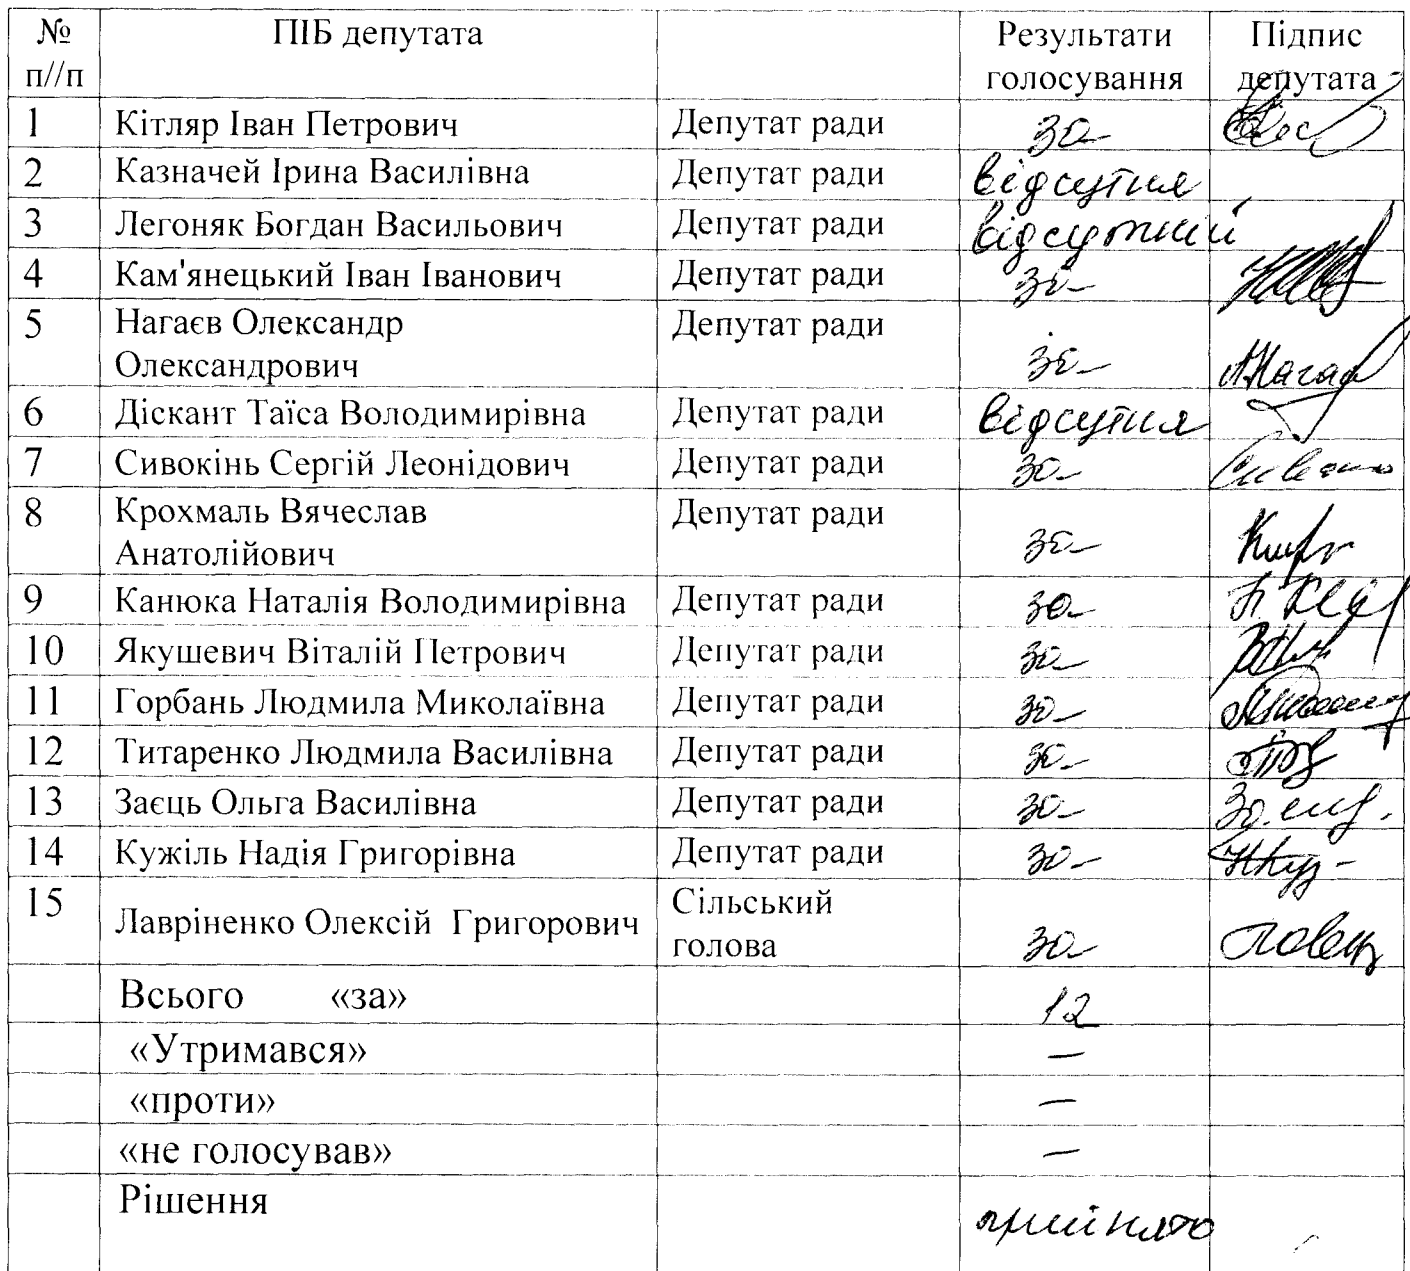 № п//п ПІБ депутата Результати голосування Підпис депутата
1 Кітляр Іван Петрович Депутат ради за
2 Казначей Ірина Василівна Депутат ради відсутня
3 Легоняк Богдан Васильович Депутат ради відсутній
4 Кам'янецький Іван Іванович Депутат ради за
5 Нагаєв Олександр Депутат ради
Олександрович за
6 Діскант Таїса Володимирівна Депутат ради відсутня
7 Сивокінь Сергій Леонідович Депутат ради за
8 Крохмаль Вячеслав Депутат ради
Анатолійович за
9 Канюка Наталія Володимирівна Депутат ради за
10 Якушевич Віталій Петрович Депутат ради за
11 Горбань Людмила Миколаївна Депутат ради за
12 Титаренко Людмила Василівна Депутат ради за
13 Заєць Ольга Василівна Депутат ради за
14 Кужіль Надія Григорівна Депутат ради за
15 Лавріненко Олексій Григорович Сільський
голова за
Всього «за» 12
«Утримався» —
«проти» —
«не голосував» —
Рішення прийнято